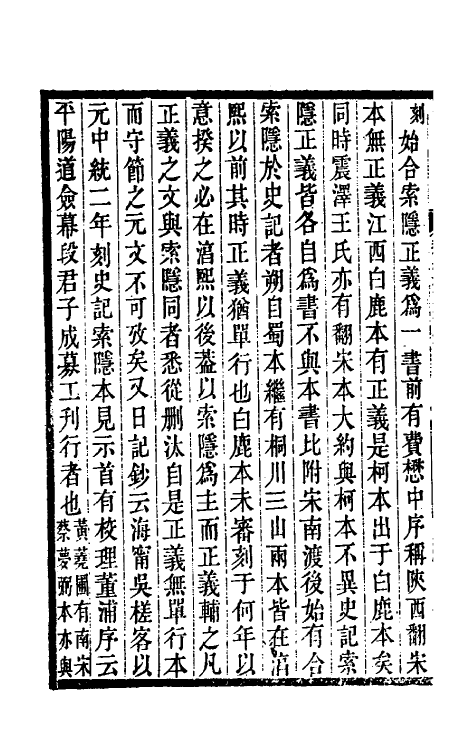 刻始合索隱正義爲一書前有費懋中序稱陝西翻宋
本無正義江西白鹿本有正義是柯本出于白鹿本矣
同時震澤王氏亦有翻宋本大約與柯本不異史記索
隱正義皆各自爲書不與本書比附宋南渡後始有合
索隱於史記者朔自蜀本繼有桐川三山兩本皆在湻
熙以前其時正義猶單行也白鹿本未審刻于何年以
意揆之必在湻熙以後葢以索隱爲主而正義輔之凡
正義之文與索隱同者悉從删汰自是正義無單行本
而守節之元文不可攷矣又日記鈔云海甯吳槎客以
元中統二年刻史記索隱本見示首有校理董浦序云
平陽道僉幕段君子成募工刊行者也黃蕘圃有南宋
蔡夢弼本亦與